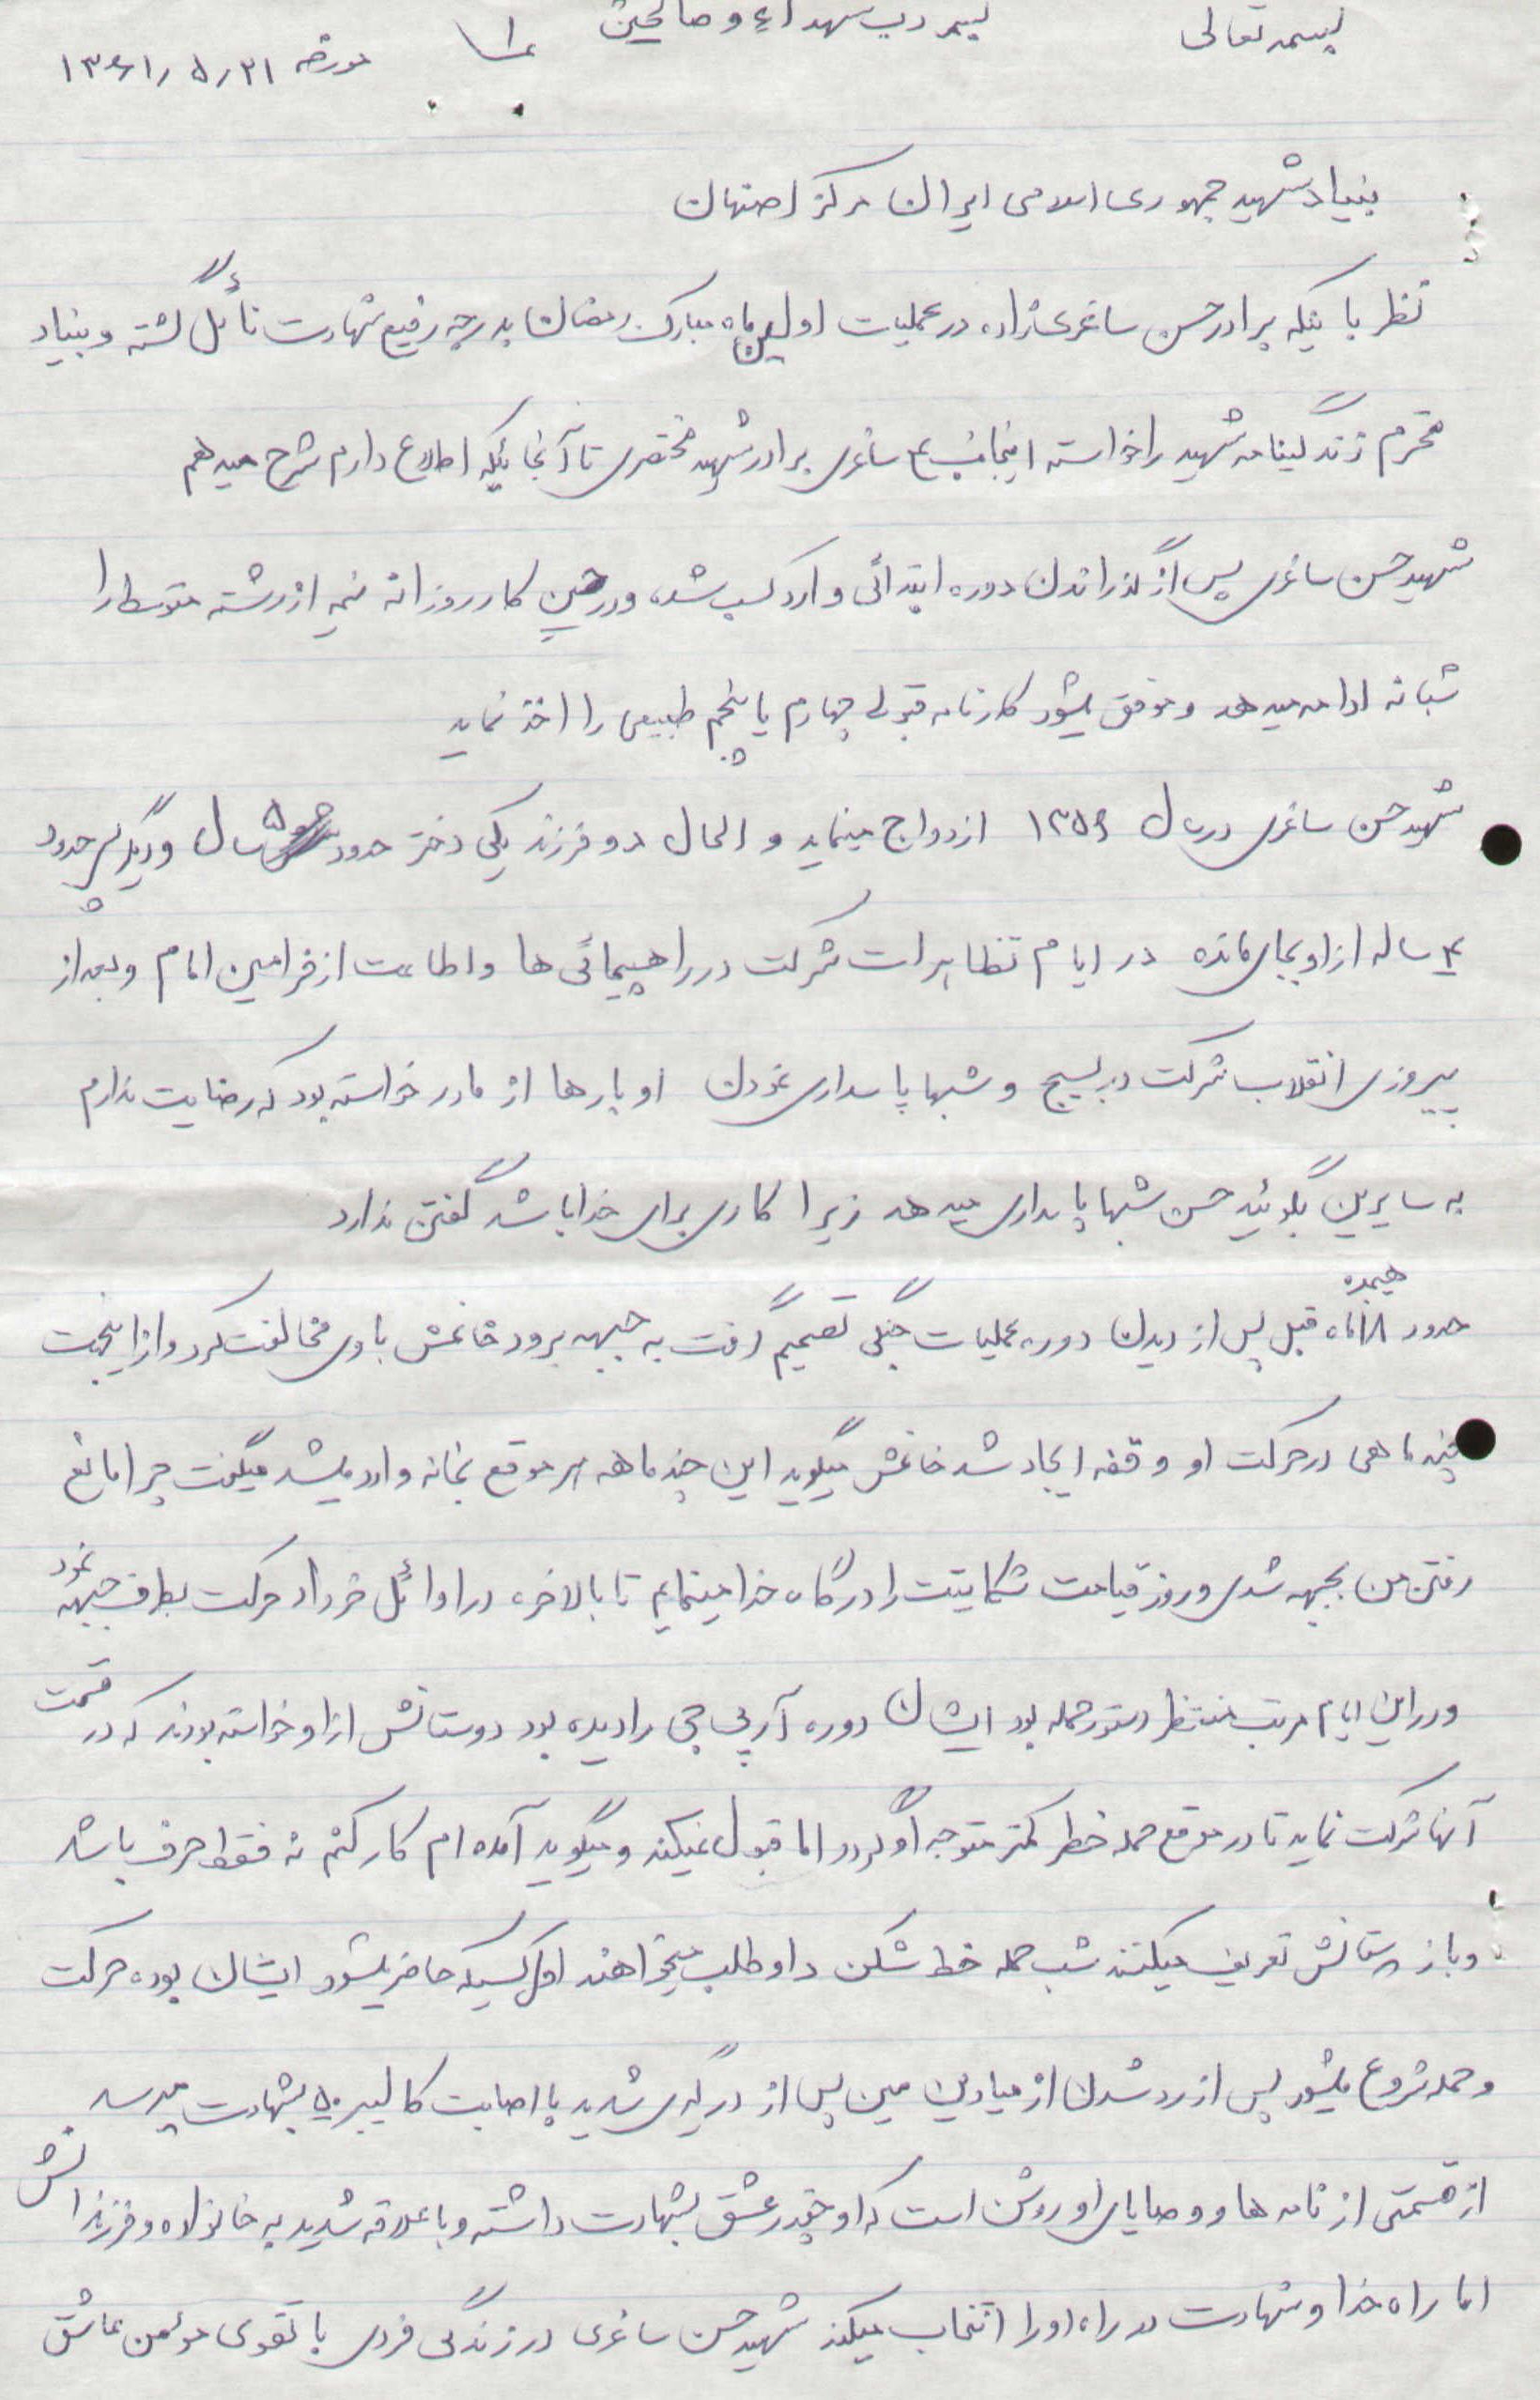 بسمه تعالی
بسم رب شهداء و صالحین
۱
مورخه ۱۳۶۱/۵/۳۱
بنیاد شهید جمهوری اسلامی ایران مرکز اصفهان
نظر باینکه برادر حسن ساغری زاده در عملیات اولین ماه مبارک رمضان بدرجه رفیع شهادت نائل گشته و بنیاد
محترم زندگینامه شهید را خواسته اینجانب ع ساغری برادر شهید مختصری تا آنجائیکه اطلاع دارم شرح میدهم
شهید حسن ساغری پس از گذراندن دوره ابتدائی وارد کسب شده و در حین کار روزانه نیمی از رشته متوسطه را
شبانه ادامه میدهد و موفق میشود کارنامه قبولی چهارم یا پنجم طبیعی را اخذ نماید
شهید حسن ساغری در سال ۱۳۵۶ ازدواج مینماید و الحال دو فرزند یکی دختر حدود ۵ سال و دیگر پسر حدود
۳ ساله از او بجای مانده در ایام تظاهرات شرکت در راهپیمائی ها و اطاعت از فرامین امام و بعد از
پیروزی انقلاب شرکت در بسیج و شبها پاسداری نمودن او بارها از مادر خواسته بود که رضایت ندارم
به سایرین بگوئید حسن شبها پاسداری میدهد زیرا کاری برای خدا باشد گفتن ندارد
حدود ۱۸ هیجده ماه قبل پس از دیدن دوره عملیات جنگی تصمیم گرفت به جبهه برود خانمش با وی مخالفت کرد و از اینجهت
چند ماهی در حرکت او وقفه ایجاد شد خانمش میگوید این چند ماهه هر موقع بخانه وارد میشد میگفت چرا مانع
رفتن من بجبهه شدی و روز قیامت شکایتت را درگاه خدا مینمایم تا بالاخره در اوائل خرداد حرکت بطرف جبهه نمود
و در این ایام مرتب منتظر دستور حمله بود ایشان دوره آرپی جی را دیده بود دوستانش از او خواسته بودند که در قسمت
آنها شرکت نماید تا در موقع حمله خطر کمتر متوجه او گردد اما قبول نمیکند و میگوید آمده ام کار کنم نه فقط حرف باشد
و باز دوستانش تعریف میکنند شب حمله خط شکن داوطلب میخواهند اول کسیکه حاضر میشود ایشان بوده حرکت
و حمله شروع میشود پس از رد شدن از میادین مین پس از درگیری شدید با اصابت کالیبر ۵۰ بشهادت میرسد
از قسمتی از نامه ها و وصایای او روشن است که او چقدر عشق بشهادت داشته و با علاقه شدید به خانواده و فرزندانش
اما راه خدا و شهادت در راه او را انتخاب میکند شهید حسن ساغری در زندگی فردی با تقوی مومن عاشق